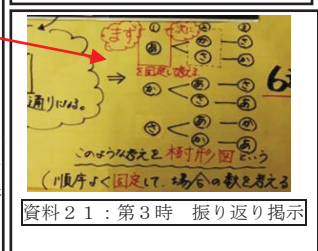 まず 次に
① ② ③
あ ＜ か ─ さ
さ ─ か
を固定して考える
⇒ か ＜ あ ─ さ
さ ─ あ
さ ＜ あ ─ か
か ─ あ
通りになる。
6通
このような考えを樹形図という
（順序よく固定して、場合の数を考える
資料２１：第３時　振り返り掲示